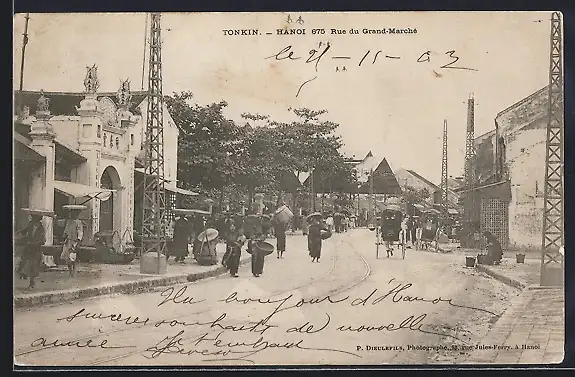 TONKIN. — HANOI 675 Rue du Grand-Marché
le 21-15-03
Un bonjour d'Hanoi
sincères souhaits de nouvelle
année
P. DIEULEFILS, Photographe, 53, rue Jules-Ferry, à Hanoi